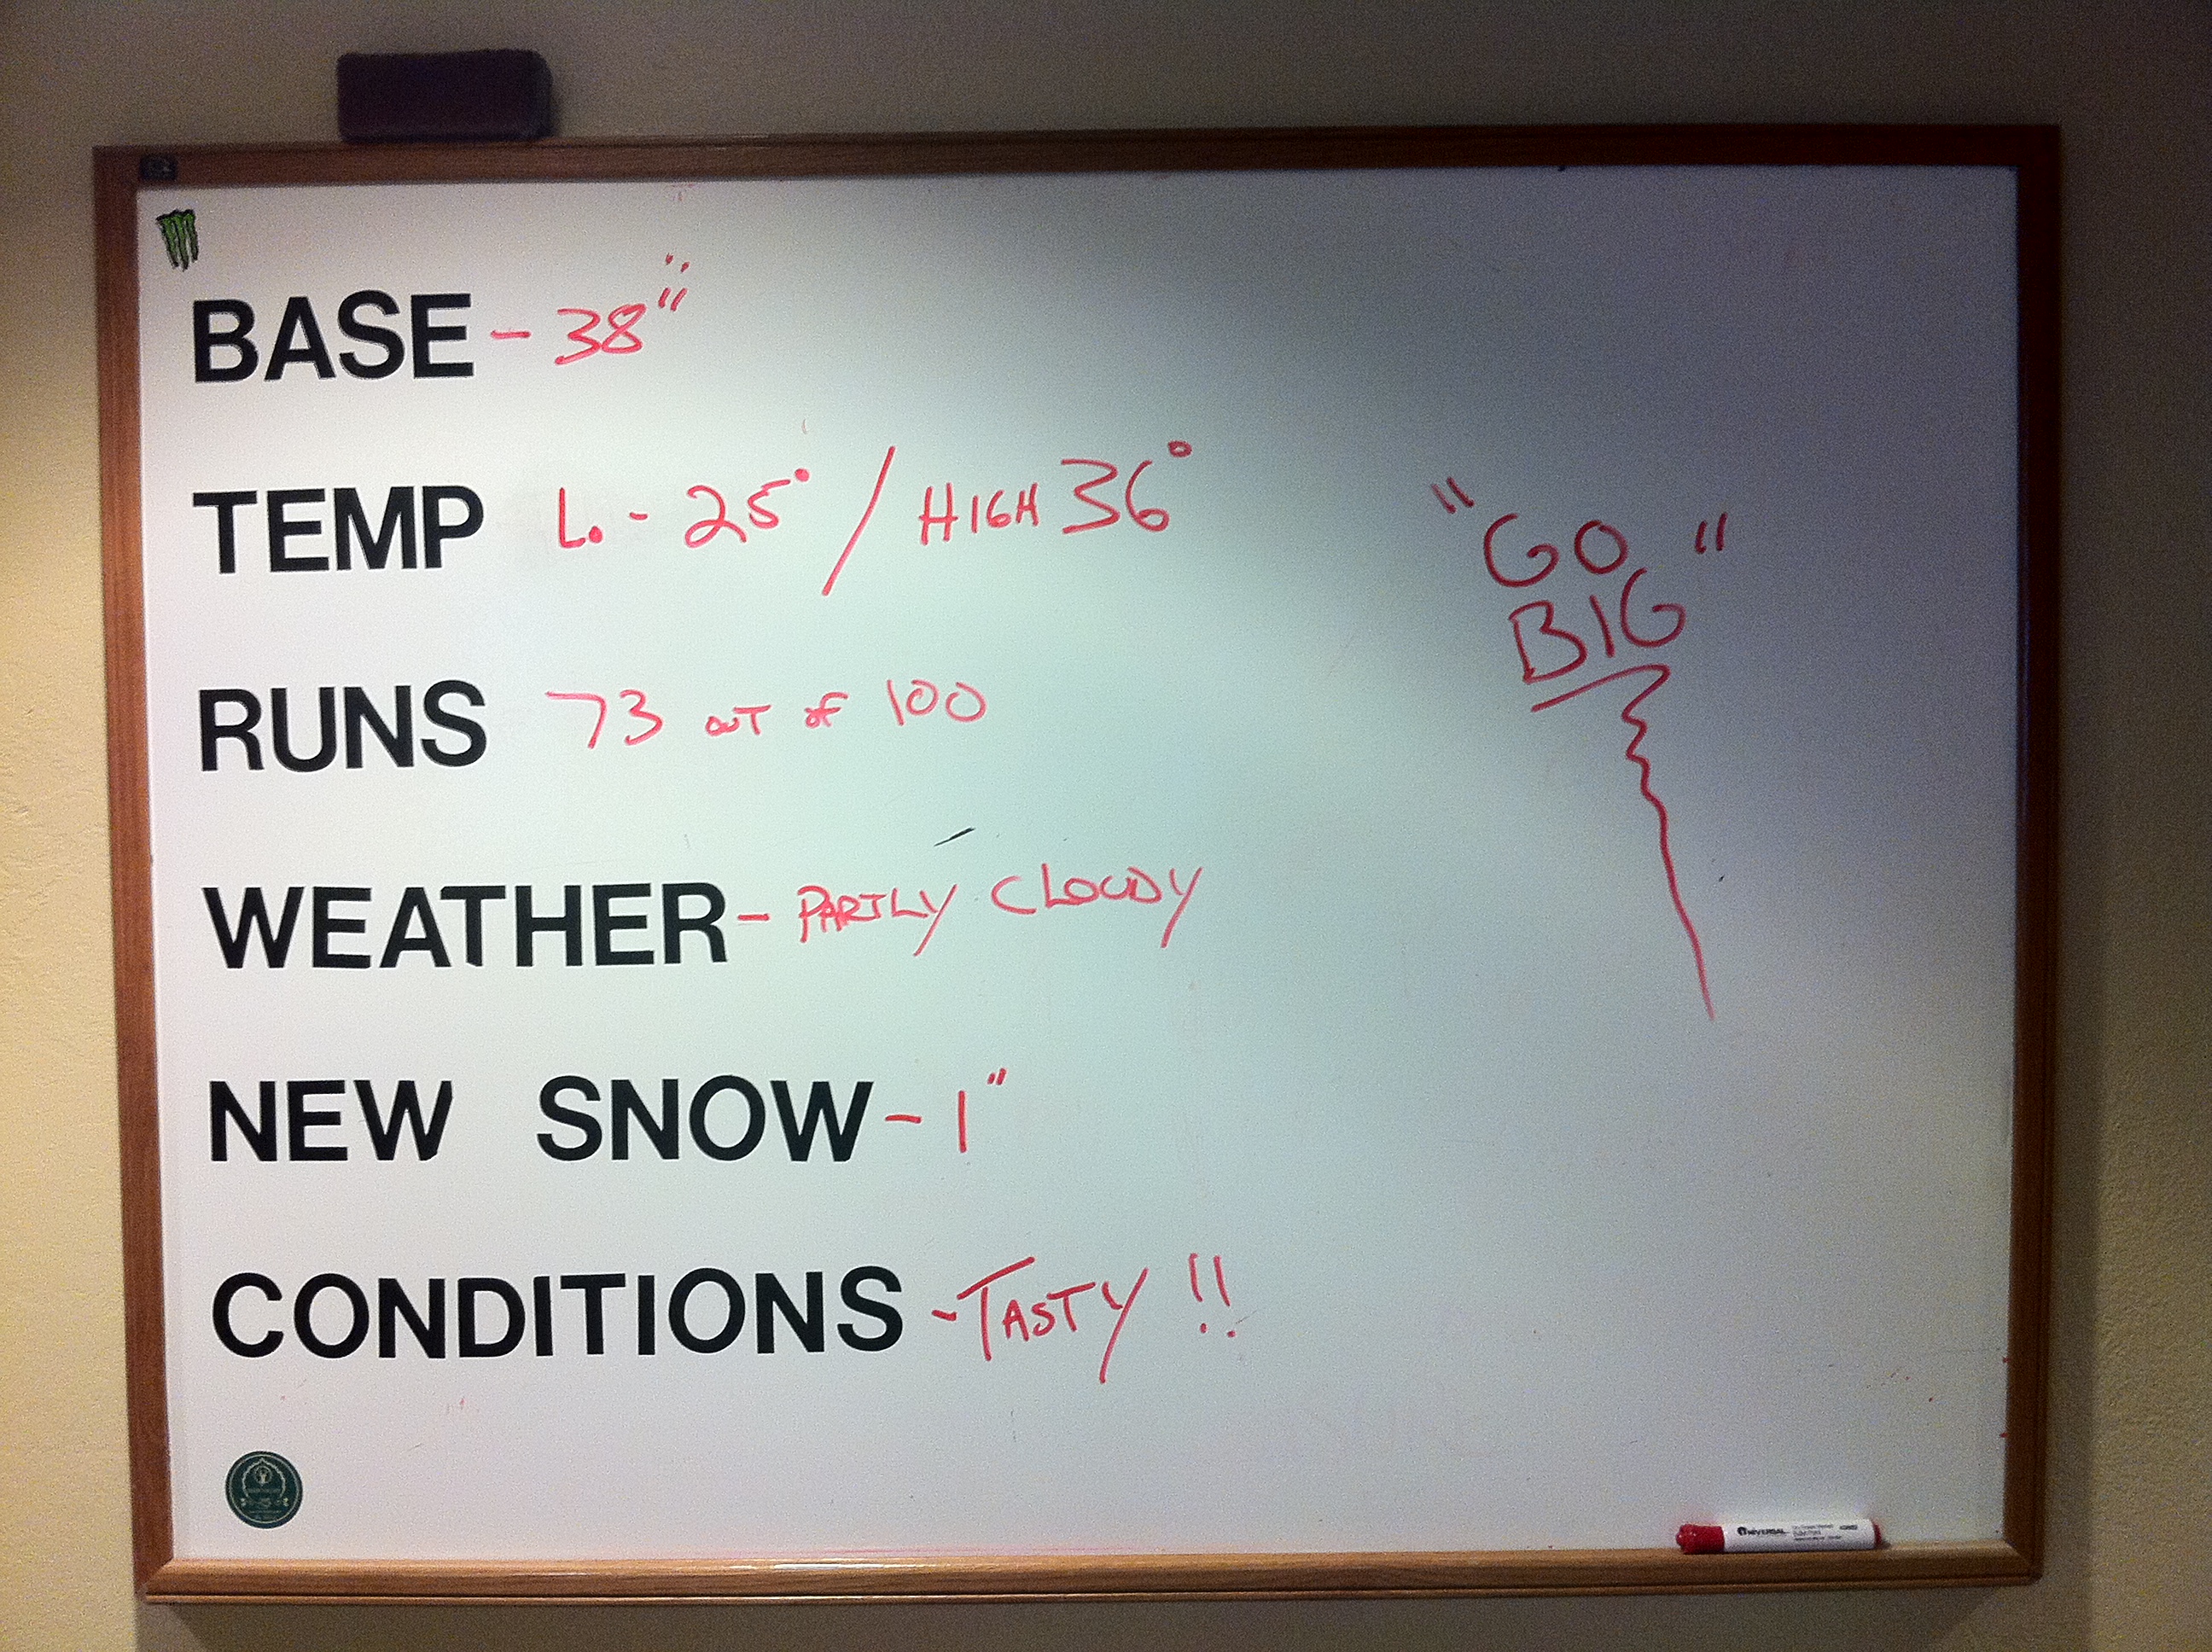 BASE - 38"
TEMP L. - 25° / HIGH 36°
RUNS 73 OUT OF 100
WEATHER - PARTLY CLOUDY
NEW SNOW - 1"
CONDITIONS - TASTY !!
"GO
BIG"
UNIVERSAL